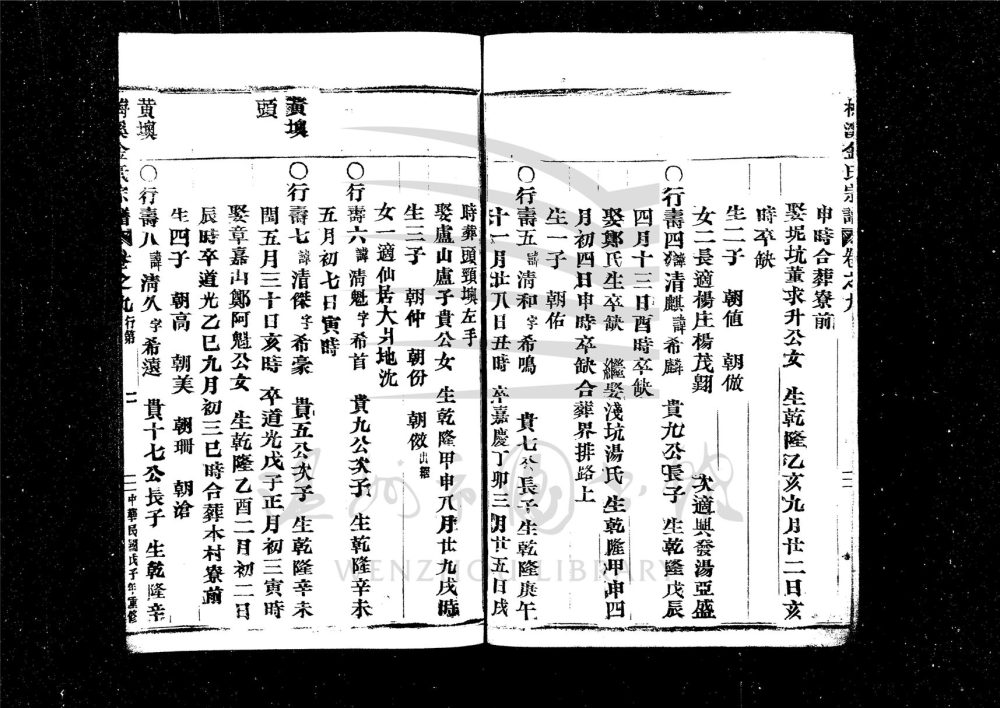 梅溪金氏宗譜 卷之九
申時合葬寮前
娶坭坑董求升公女 生乾隆乙亥九月廿二日亥
時卒缺
生二子 朝值 朝倣
女二長適楊庄楊茂翾 次適興發湯亞盛
〇行壽四 清麒諱希麟 貴九公長子 生乾隆戊辰
四月十三日酉時卒缺
娶鄭氏生卒缺 繼娶淺坑湯氏 生乾隆甲申四
月初四日申時卒缺合葬界排路上
生一子 朝佑
〇行壽五諱清和字希鳴 貴七公長子生乾隆庚午
十一月廿八日丑時 卒嘉慶丁卯三月廿五日戌
時葬頭頸壙左手
娶盧山盧子貴公女 生乾隆甲申八月廿九戌時
生三子 朝仲 朝份 朝儆出繼
女一適仙居大爿地沈
〇行壽六諱清魁字希首 貴九公次子 生乾隆辛未
五月初七日寅時
黃壙頭
〇行壽七諱清傑字希豪 貴五公次子 生乾隆辛未
閏五月三十日亥時 卒道光戊子正月初三寅時
娶章嘉山鄭阿魁公女 生乾隆乙酉二月初二日
辰時卒道光乙巳九月初三巳時合葬本村寮前
生四子 朝高 朝美 朝珊 朝滄
黃壙
〇行壽八諱清久字希遠 貴十七公長子 生乾隆辛
梅溪金氏宗譜 卷之九 行第 二 中華民國戊子年重修
WENZHOU LIBRARY